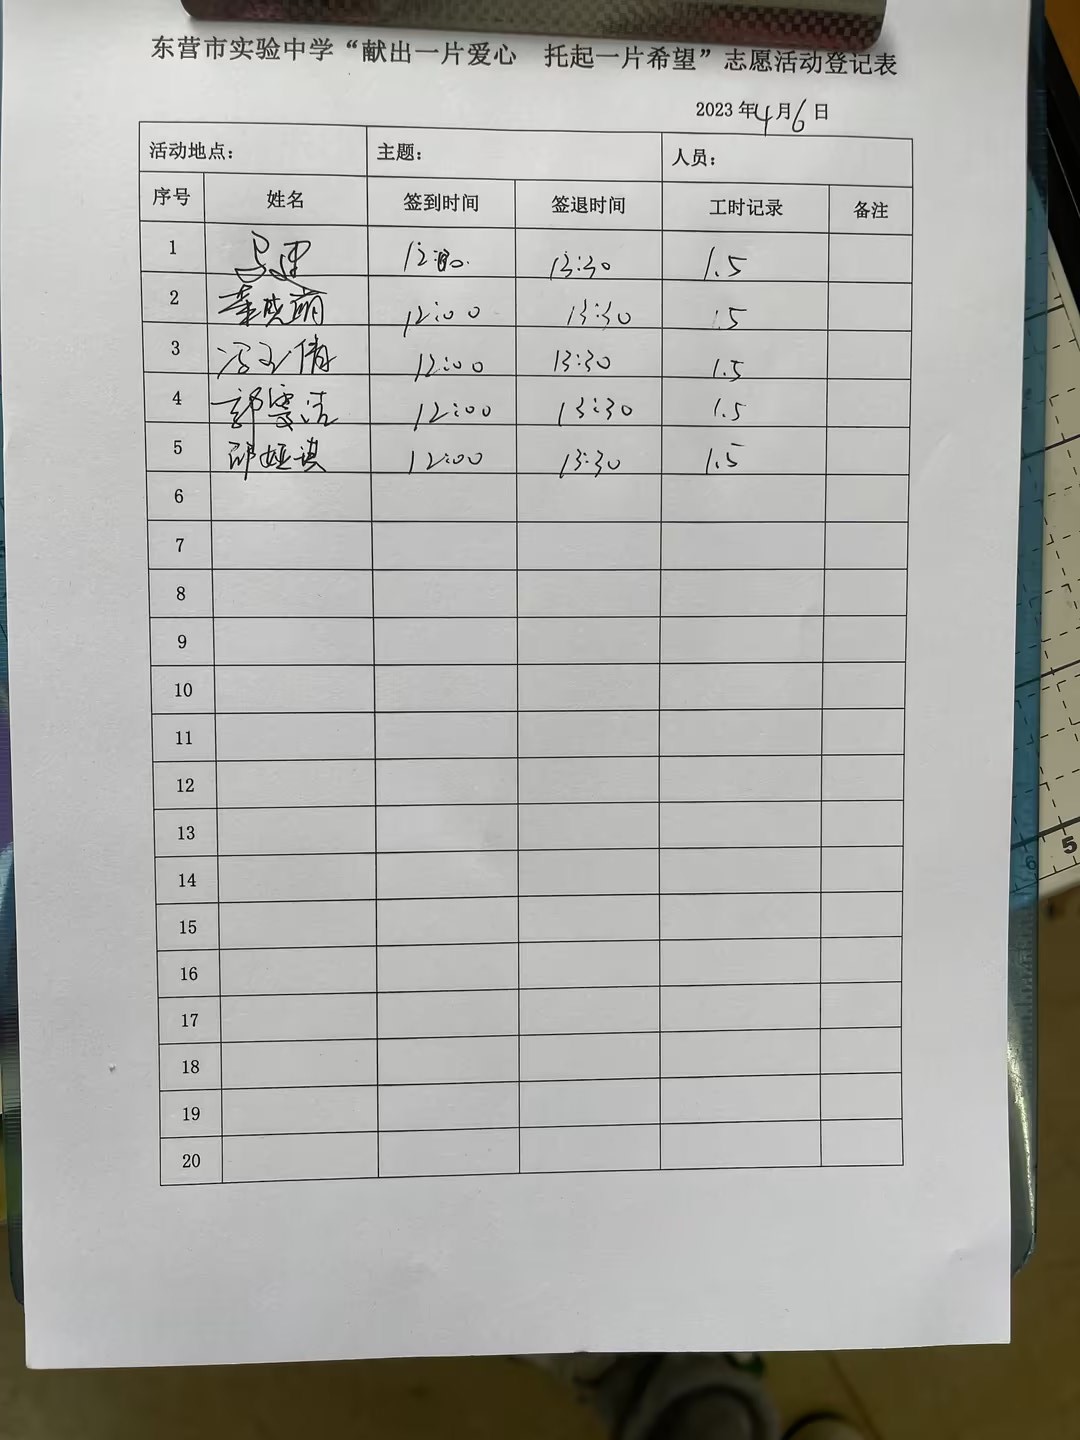 东营市实验中学“献出一片爱心 托起一片希望”志愿活动登记表
2023 年 4 月 6 日
活动地点： 主题： 人员：
序号 姓名 签到时间 签退时间 工时记录 备注
1 12:00 13:30 1.5
2 董晓丽 12:00 13:30 1.5
3 冯玉倩 12:00 13:30 1.5
4 郭雯洁 12:00 13:30 1.5
5 邵娅琪 12:00 13:30 1.5
6
7
8
9
10
11
12
13
14
15
16
17
18
19
20
6 5